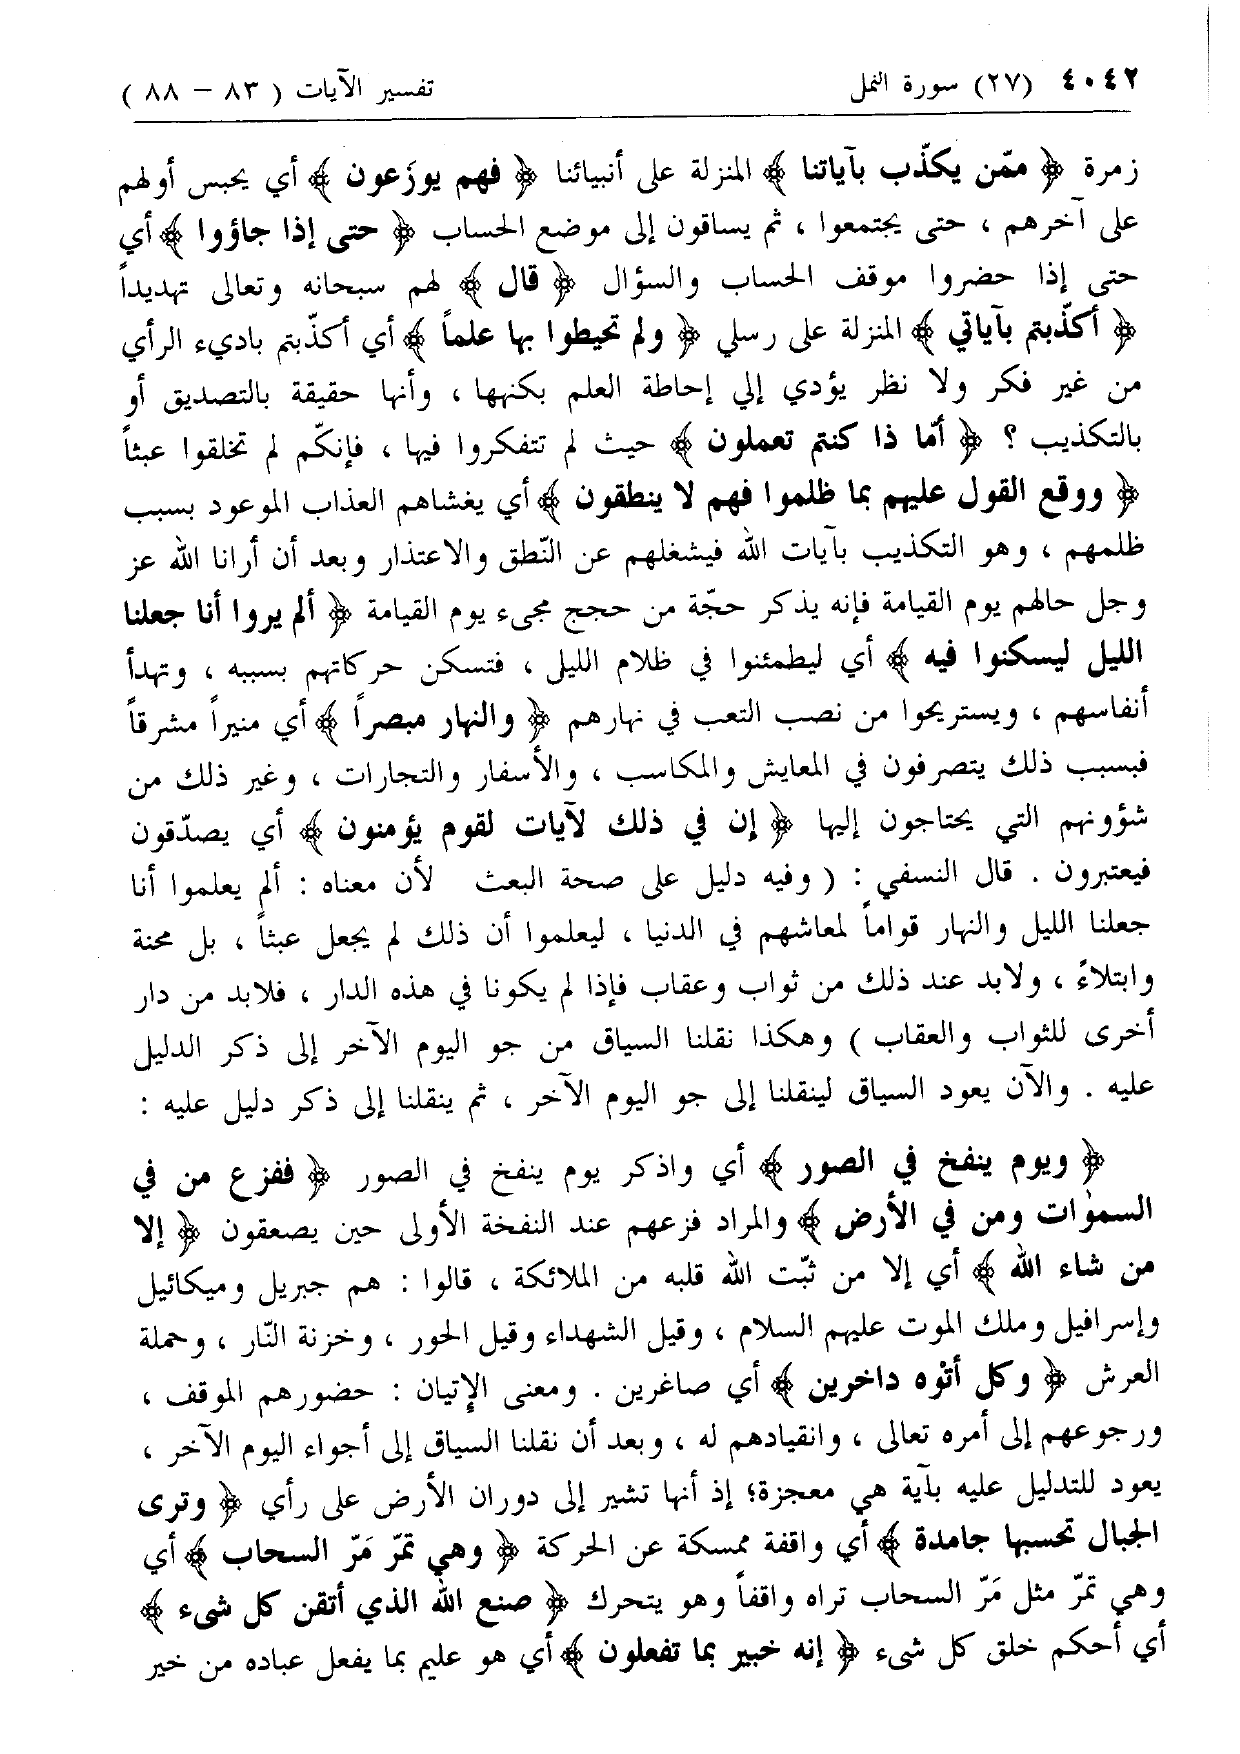 ٤٠٤٢ (٢٧) سورة النمل تفسير الآيات ( ٨٣ – ٨٨ )
زمرة ﴿ ممّن يكذّب بآياتنا ﴾ المنزلة على أنبيائنا ﴿ فهم يوزَعون ﴾ أي يحبس أولهم
على آخرهم ، حتى يجتمعوا ، ثم يساقون إلى موضع الحساب ﴿ حتى إذا جاؤوا ﴾ أي
حتى إذا حضروا موقف الحساب والسؤال ﴿ قال ﴾ لهم سبحانه وتعالى تهديداً
﴿ أكذّبتم بآياتي ﴾ المنزلة على رسلي ﴿ ولم تحيطوا بها علماً ﴾ أي أكذّبتم باديء الرأي
من غير فكر ولا نظر يؤدي إلي إحاطة العلم بكنهها ، وأنها حقيقة بالتصديق أو
بالتكذيب ؟ ﴿ أمّا ذا كنتم تعملون ﴾ حيث لم تتفكروا فيها ، فإنكّم لم تخلقوا عبثاً
﴿ ووقع القول عليهم بما ظلموا فهم لا ينطقون ﴾ أي يغشاهم العذاب الموعود بسبب
ظلمهم ، وهو التكذيب بآيات الله فيشغلهم عن النّطق والاعتذار وبعد أن أرانا الله عز
وجل حالهم يوم القيامة فإنه يذكر حجّة من حجج مجيء يوم القيامة ﴿ ألم يروا أنا جعلنا
الليل ليسكنوا فيه ﴾ أي ليطمئنوا في ظلام الليل ، فتسكن حركاتهم بسببه ، وتهدأ
أنفاسهم ، ويستريحوا من نصب التعب في نهارهم ﴿ والنهار مبصراً ﴾ أي منيراً مشرقاً
فبسبب ذلك يتصرفون في المعايش والمكاسب ، والأسفار والتجارات ، وغير ذلك من
شؤونهم التي يحتاجون إليها ﴿ إن في ذلك لآيات لقوم يؤمنون ﴾ أي يصدّقون
فيعتبرون . قال النسفي : ( وفيه دليل على صحة البعث لأن معناه : ألم يعلموا أنا
جعلنا الليل والنهار قواماً لمعاشهم في الدنيا ، ليعلموا أن ذلك لم يجعل عبثاً ، بل محنة
وابتلاءً ، ولابد عند ذلك من ثواب وعقاب فإذا لم يكونا في هذه الدار ، فلابد من دار
أخرى للثواب والعقاب ) وهكذا نقلنا السياق من جو اليوم الآخر إلى ذكر الدليل
عليه . والآن يعود السياق لينقلنا إلى جو اليوم الآخر ، ثم ينقلنا إلى ذكر دليل عليه :
﴿ ويوم ينفخ في الصور ﴾ أي واذكر يوم ينفخ في الصور ﴿ ففزع من في
السمٰوات ومن في الأرض ﴾ والمراد فزعهم عند النفخة الأولى حين يصعقون ﴿ إلا
من شاء الله ﴾ أي إلا من ثبّت الله قلبه من الملائكة ، قالوا : هم جبريل وميكائيل
وإسرافيل وملك الموت عليهم السلام ، وقيل الشهداء وقيل الحور ، وخزنة النّار ، وحملة
العرش ﴿ وكل أتوْه داخرين ﴾ أي صاغرين . ومعنى الإتيان : حضورهم الموقف ،
ورجوعهم إلى أمره تعالى ، وانقيادهم له ، وبعد أن نقلنا السياق إلى أجواء اليوم الآخر ،
يعود للتدليل عليه بآية هي معجزة؛ إذ أنها تشير إلى دوران الأرض على رأي ﴿ وترى
الجبال تحسبها جامدة ﴾ أي واقفة ممسكة عن الحركة ﴿ وهي تمرّ مَرّ السحاب ﴾ أي
وهي تمرّ مثل مَرّ السحاب تراه واقفاً وهو يتحرك ﴿ صنع الله الذي أتقن كل شيء ﴾
أي أحكم خلق كل شيء ﴿ إنه خبير بما تفعلون ﴾ أي هو عليم بما يفعل عباده من خير